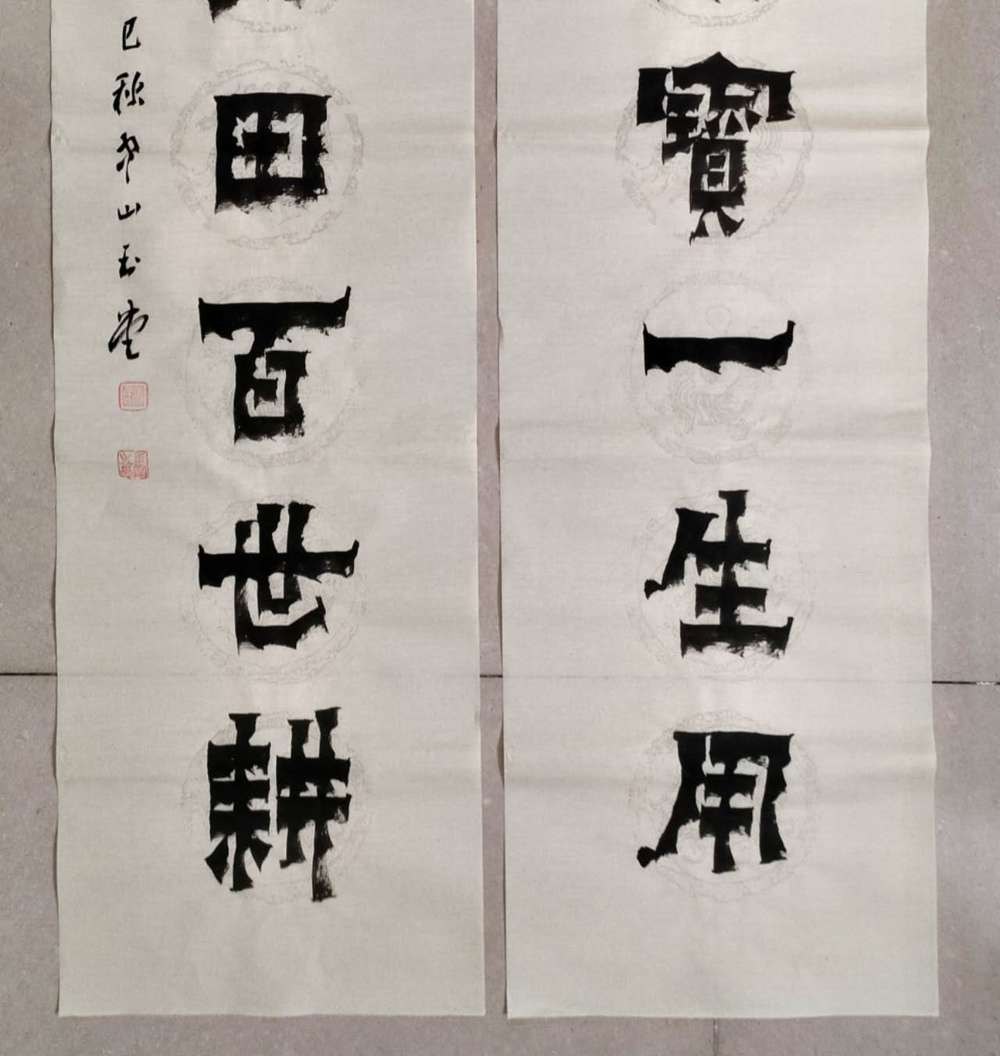 寶一生用
田百世耕
巳秋山玉堂